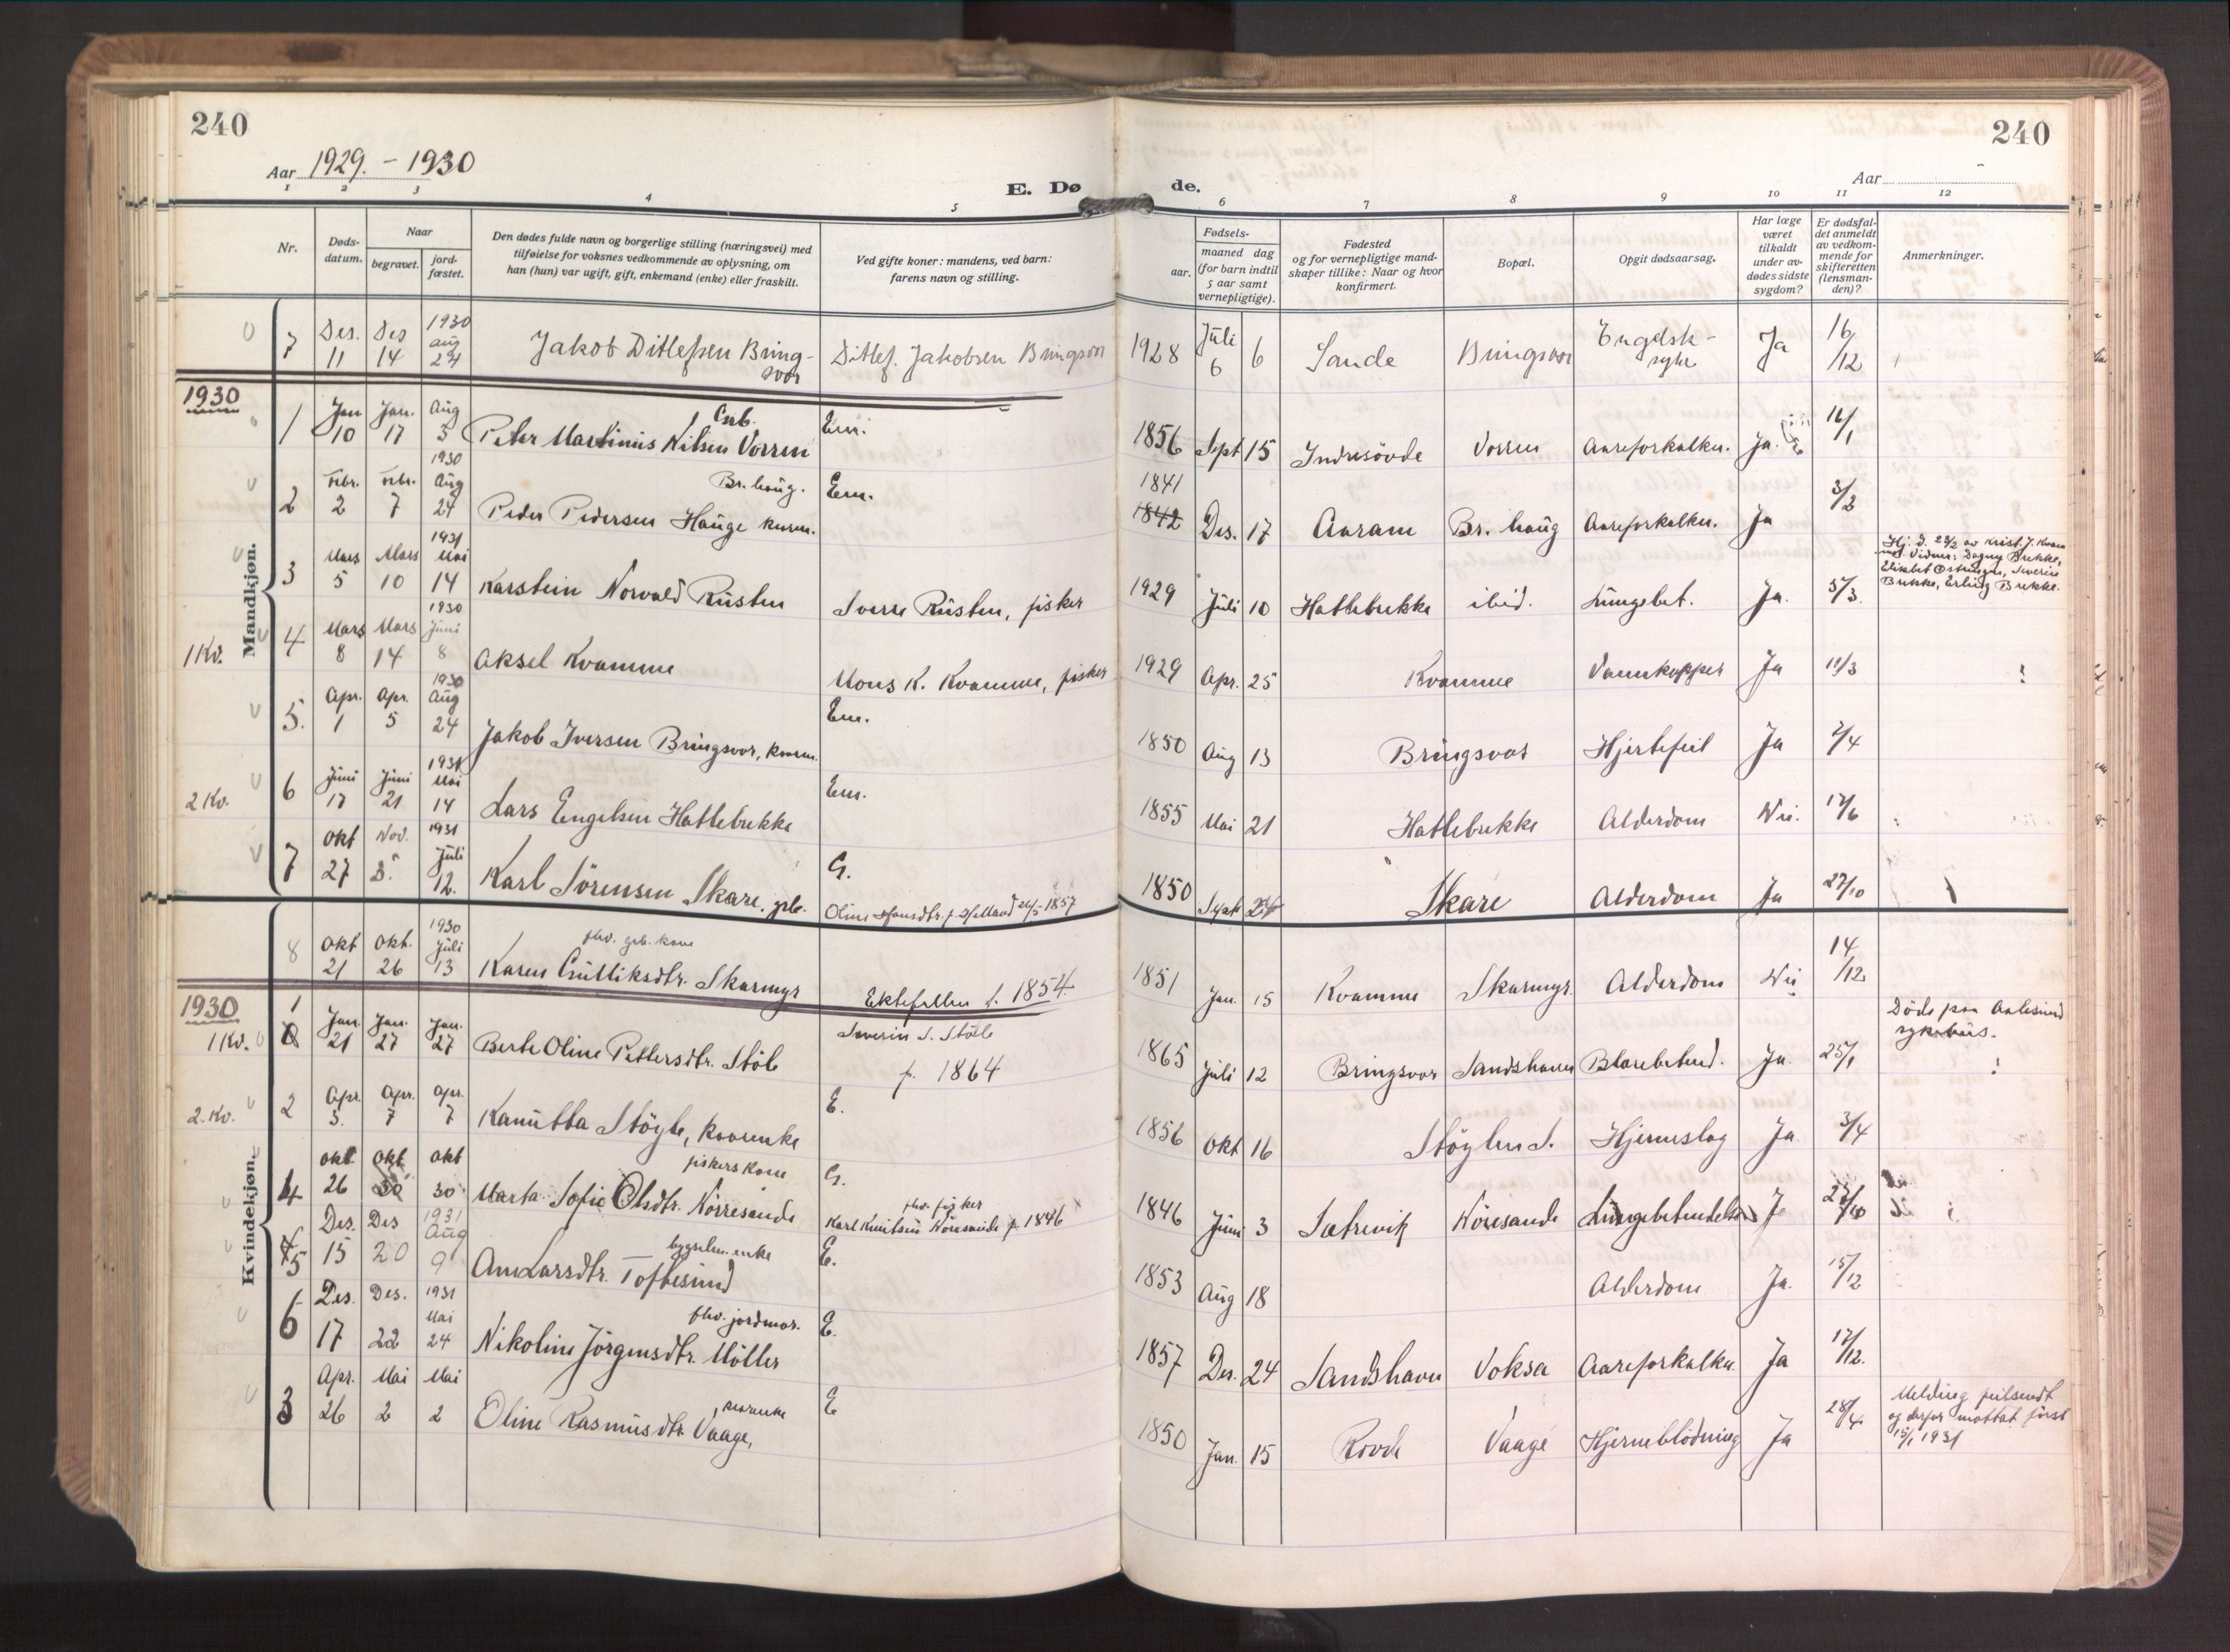 240
240
Aar 1929. - 1930
E. Dø
de.
Aar
1 2 3 4 5 6 7 8 9 10 11 12
Nr.
Døds-
datum.
Naar
begravet.
jord-
fæstet.
Den dødes fulde navn og borgerlige stilling (næringsvei) med
tilføielse for voksnes vedkommende av oplysning, om
han (hun) var ugift, gift, enkemand (enke) eller fraskilt.
Ved gifte koner: mandens, ved barn:
farens navn og stilling.
Fødsels-
aar.
maaned dag
(for barn indtil
5 aar samt
vernepligtige).
Fødested
og for vernepligtige mand-
skaper tillike: Naar og hvor
konfirmert.
Bopæl.
Opgit dødsaarsag.
Har læge
været
tilkaldt
under av-
dødes sidste
sygdom?
Er dødsfal-
det anmeldt
av vedkom-
mende for
skifteretten
(lensman-
den)?
Anmerkninger.
7 Des. 11 Des 14 1930 aug 24 Jakob Ditlefsen Bring-
svor Ditlef. Jakobsen Bringsvor 1928 Juli 6 6 Sande Bringsvor Engelsk-
syke Ja 16/12
1930
Mandkjøn.
1 Jan 10 Jan. 17 Aug 3 Peter Martinus Nilsen Vorren Em. 1856 Sept 15 Indresövde Vorren Aareforkalkn. Ja. 16/1
2 Febr. 2 Febr. 7 1930 Aug 24 Peder Pedersen Hauge Br. haug. Em. 1841 1842 Des. 17 Aaram Br. haug Aareforkalkn. Ja 3/2
3 Mars 5 Mars 10 1931 Mai 14 Karstein Norvald Rüsten Sverre Rüsten, fisker 1929 Juli 10 Hatlebrekke ibid. Lungebet. Ja. 5/3.
Vidner: Dagny Brekke,
Brekke, Erling Brekke.
1 Kv. 4 Mars 8 Mars 14 1930 Juni 8 Aksel Kvamme Mons K. Kvamme, fisker 1929 Apr. 25 Kvamme Vannkopper Ja 11/3
5. Apr. 1 Apr. 5 1930 Aug 24 Jakob Iversen Bringsvor, Em. 1850 Aug 13 Bringsvor Hjertefeil Ja 2/4
2 Kv. 6 Juni 17 Juni 21 1931 Mai 14 Lars Engelsen Hatlebrekke Em. 1855 Mai 21 Hatlebrekke Alderdom Nei. 17/6
7 Okt 27 Nov. 3. 1931 Juli 12. Karl Sörensen Skare, grb. G.
Oline Hansdtr. f. 1857 1850 Sept Skare Alderdom Ja 27/10
Kvindekjøn.
8 Okt 21 Okt. 26 1930 Juli 13 fhv. grb. kone
Karen Guttiksdtr. Skarmyr Ektefellen f. 1854. 1851 Jan. 15 Kvamme Skarmyr Alderdom Nei 14/12
1930
1 Kv. 1 Jan. 21 Jan. 27 Jan. 27 Berte Oline Pettersdtr. Stöle Severin S. Stöle
f. 1864 1865 Juli 12 Bringsvor Sandshavn Blærebetend. Ja. 25/1 Döde paa Aalesund
sykehus.
2. Kv. 2 Apr. 3. Apr. 7 Apr. 7 Kanutta Støyle, E. 1856 Okt 16 Støylen S. Hjerneslag Ja. 3/4
4 Okt 26 Okt 30 Okt 30 fiskers kone
Marta Sofie Olsdtr. Nörresande G.
fhv. fisker
Karl Knutsen Nöresande f. 1846 1846 Juni 3 Sætrevik Nöresande Lungebetendelse Ja
5 Des. 15 Des 20 1931 Aug 9 bygselm. enke
Ane Larsdtr. Toftesund E. 1853 Aug 18 Alderdom Ja. 15/12
6 Des. 17 Des. 22 1931 Mai 24 fhv. jordmor.
Nikoline Jörgensdtr. Möller E. 1857 Des. 24 Sandshavn Voksa Aareforkalkn. Ja 17/12.
3 Apr. 26 Mai 2 Mai 2 Oline Rasmusdtr. Vaage, E 1850 Jan. 15 Rovde Vaage Hjerneblödning Ja 28/4. Melding feilsendt
og derfor mottat först
15/1 1931